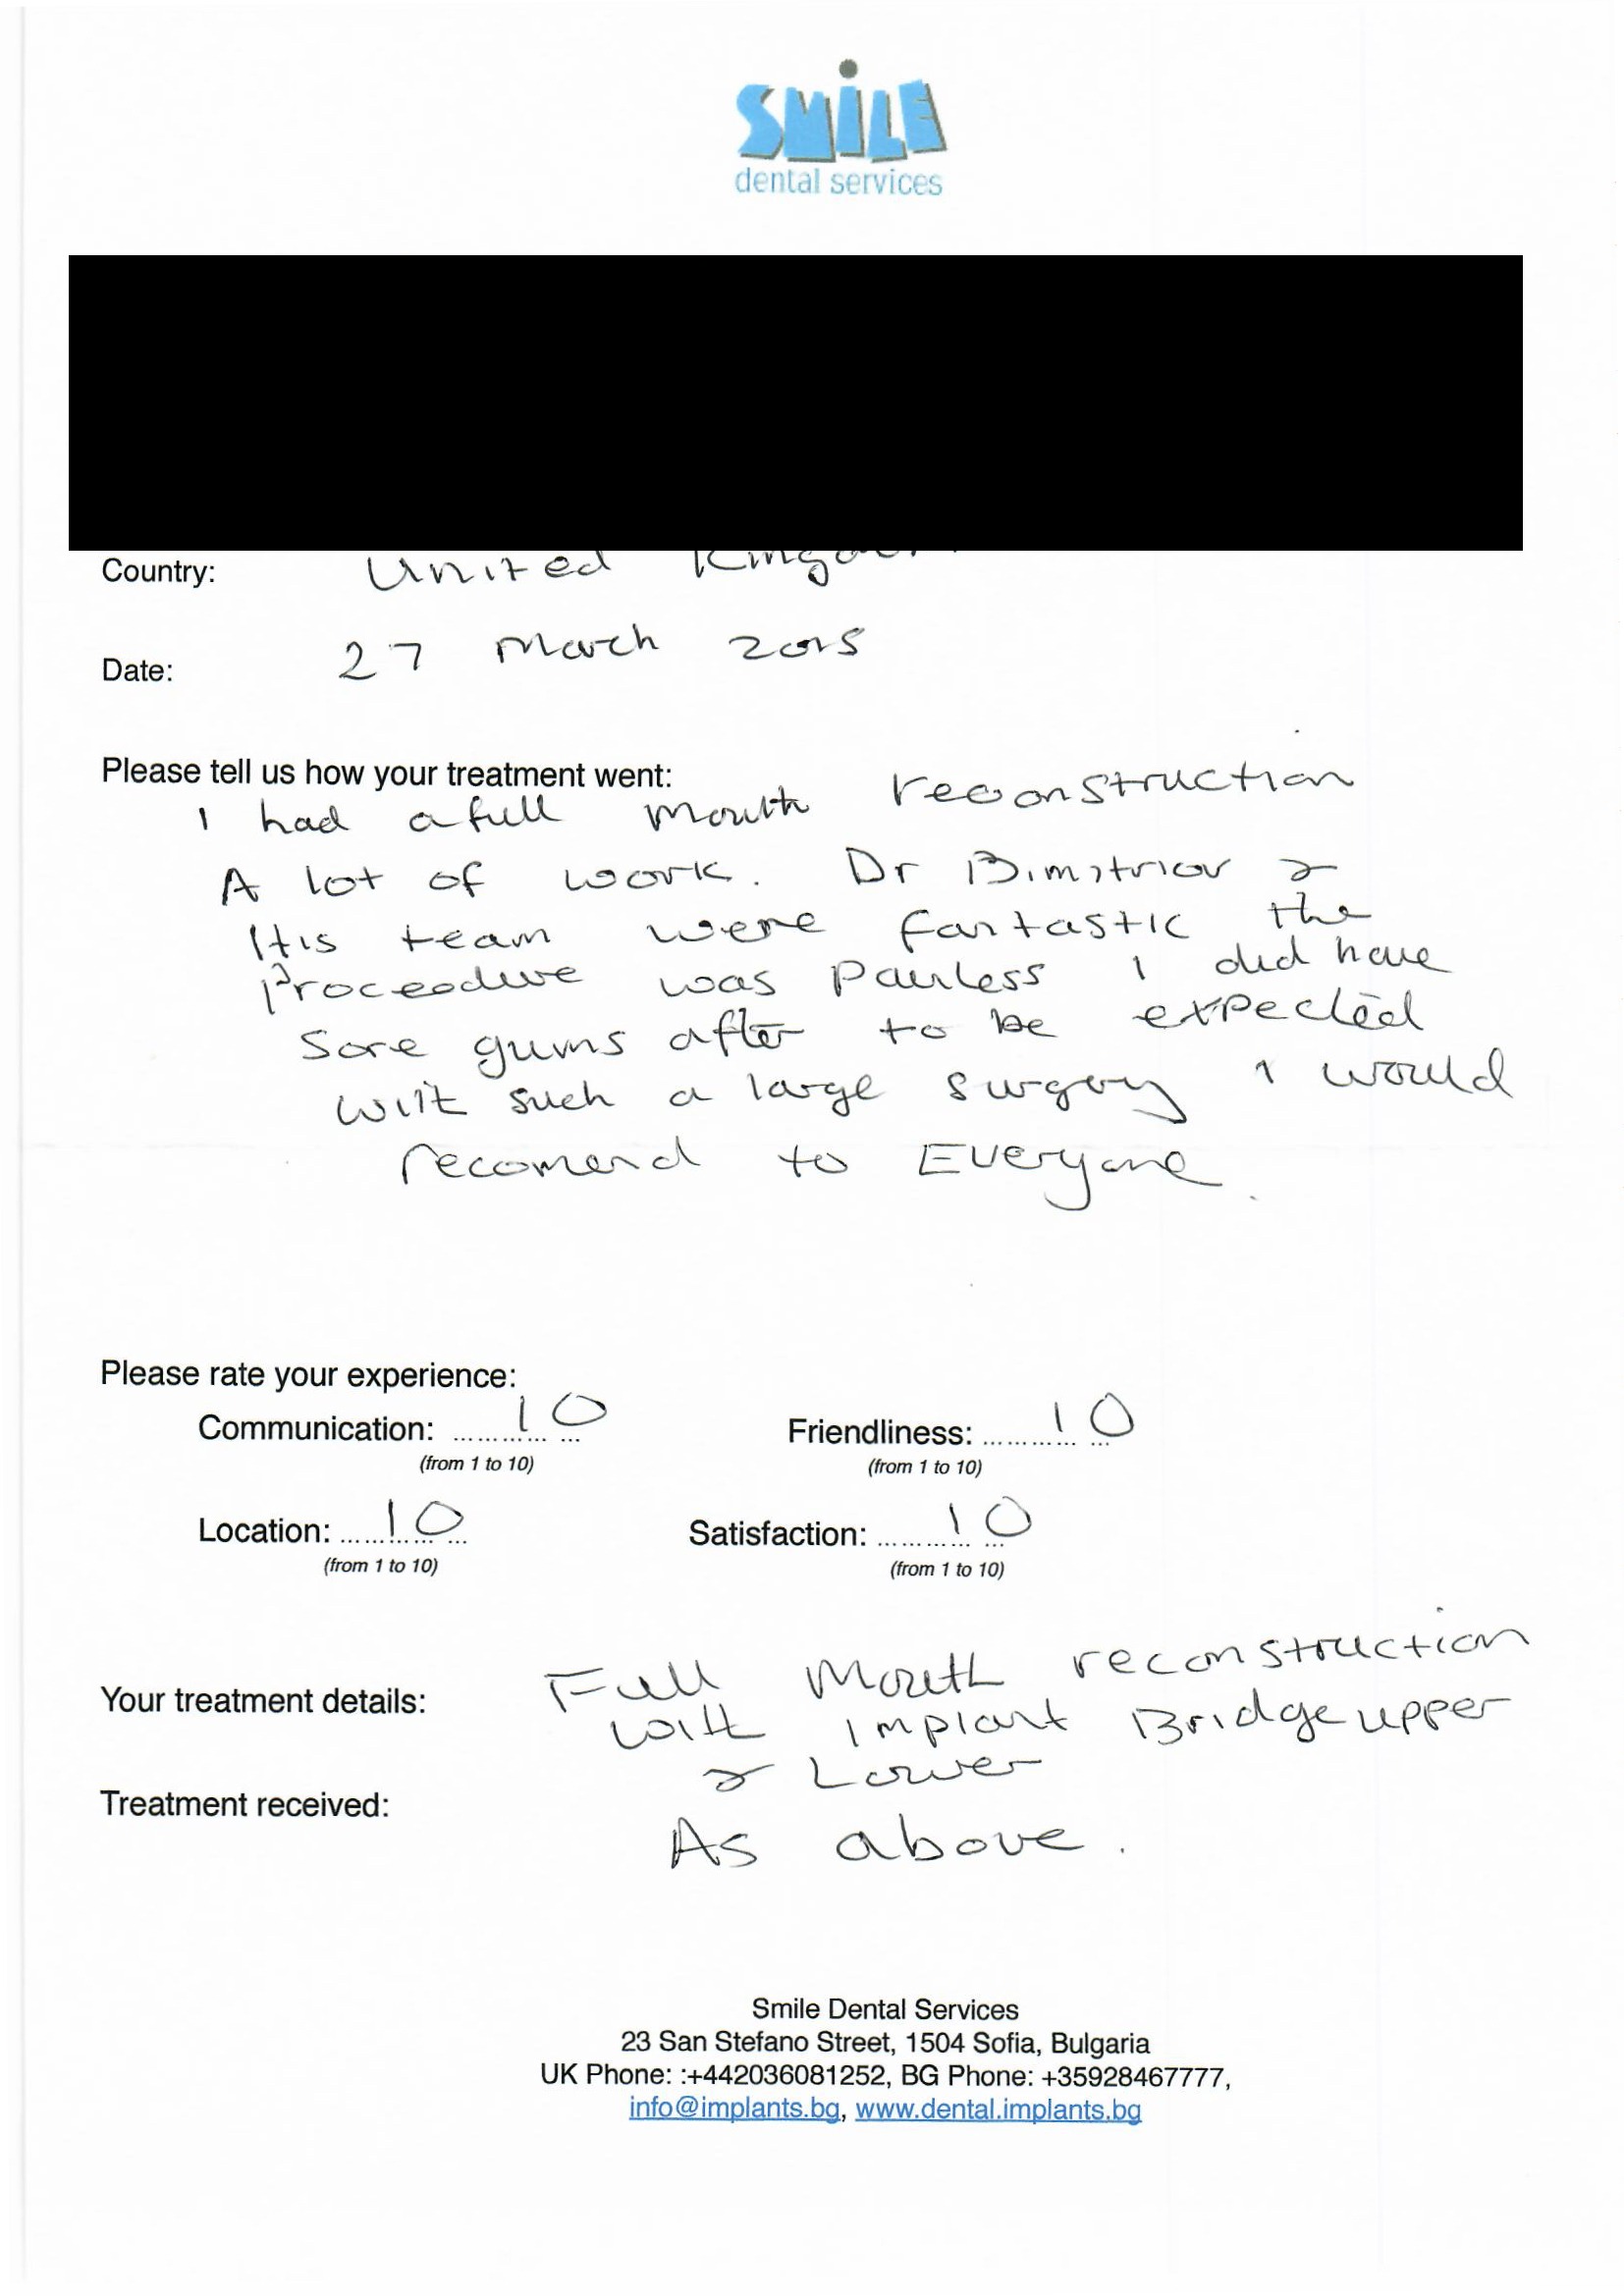 SMiLE
dental services
Country: United Kingdom
Date: 27 March 2015
Please tell us how your treatment went:
I had a full mouth reconstruction
A lot of work. Dr Bimitriov &
His team were fantastic the
Proceedure was Painless I did have
Sore gums after to be expected
with such a large surgery I would
recomend to Everyone.
Please rate your experience:
Communication: 10 Friendliness: 10
(from 1 to 10) (from 1 to 10)
Location: 10 Satisfaction: 10
(from 1 to 10) (from 1 to 10)
Your treatment details: Full Mouth reconstruction
with implant Bridge upper
& Lower
Treatment received:
As above.
Smile Dental Services
23 San Stefano Street, 1504 Sofia, Bulgaria
UK Phone: :+442036081252, BG Phone: +35928467777,
info@implants.bg, www.dental.implants.bg